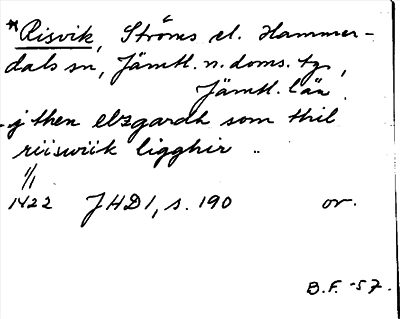 *Risvik, Ströms el. Hammer-
dals sn, Jämtl. n. doms. tg,
Jämtl. län.
- j then elzgardh som thil
riiswiik ligghir ..
1/1
1422 JHD 1, s. 190 or.
B.F. -57.